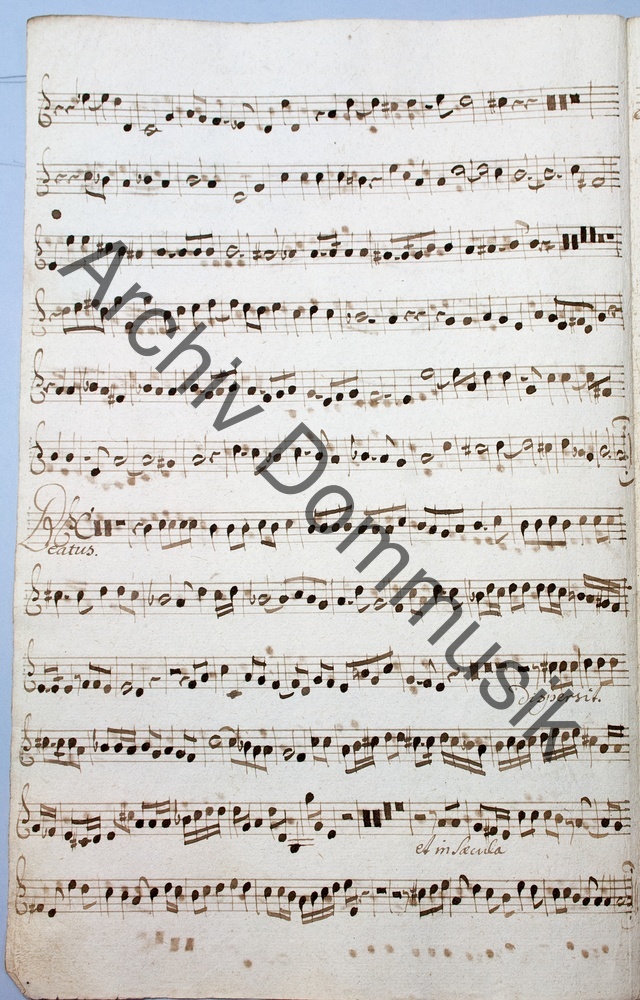 Beatus.
dispersit.
et in sæcula
Archiv Dommusik